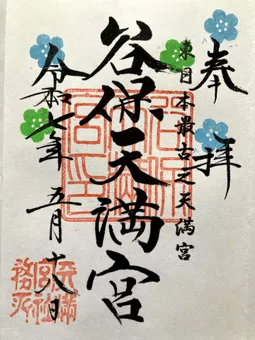 奉拝
東日本最古之天満宮
谷保天満宮
令和七年 五月 十八日
天満宮社務所